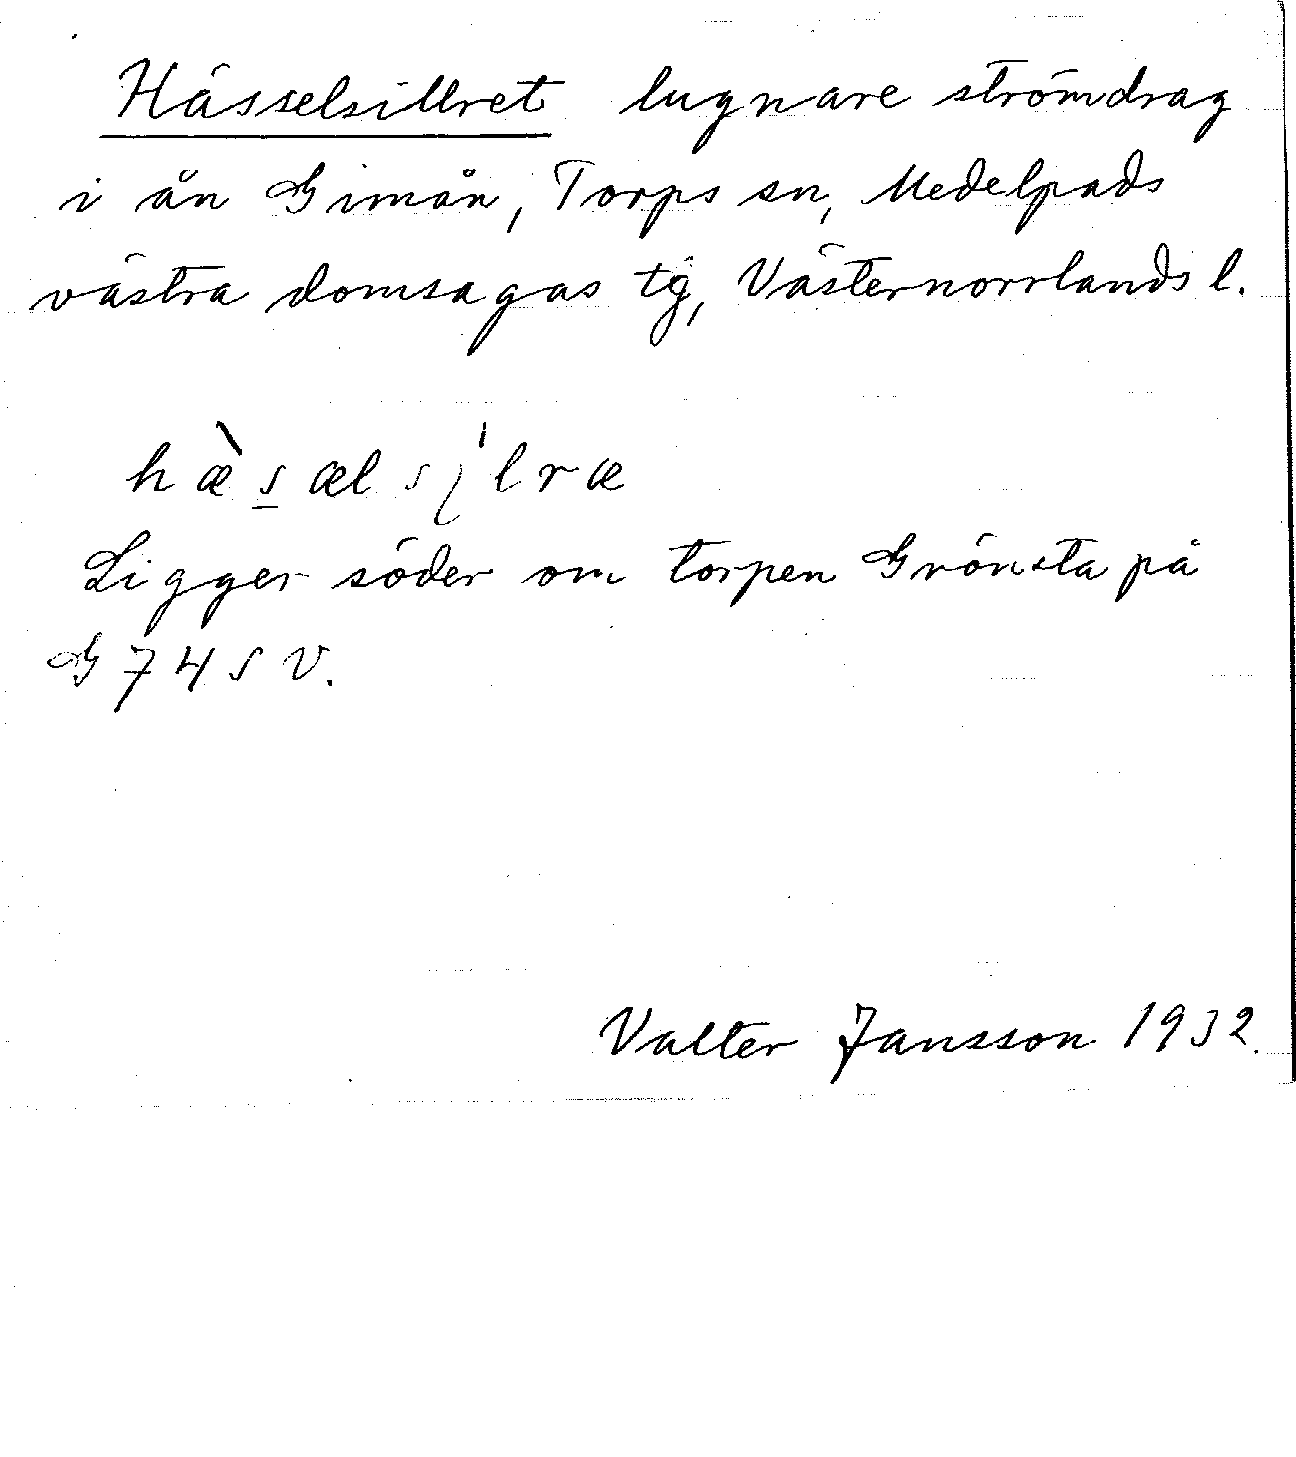 Hässelsillret lugnare strömdrag
i ån Gimån, Torps sn, Medelpads
västra domsagas tg, Västernorrlands l.
hæ̀s̲æl sɩ̍lræ
Ligger söder om torpen Grönsta på
G 74 S V.
Valter Jansson 1932.